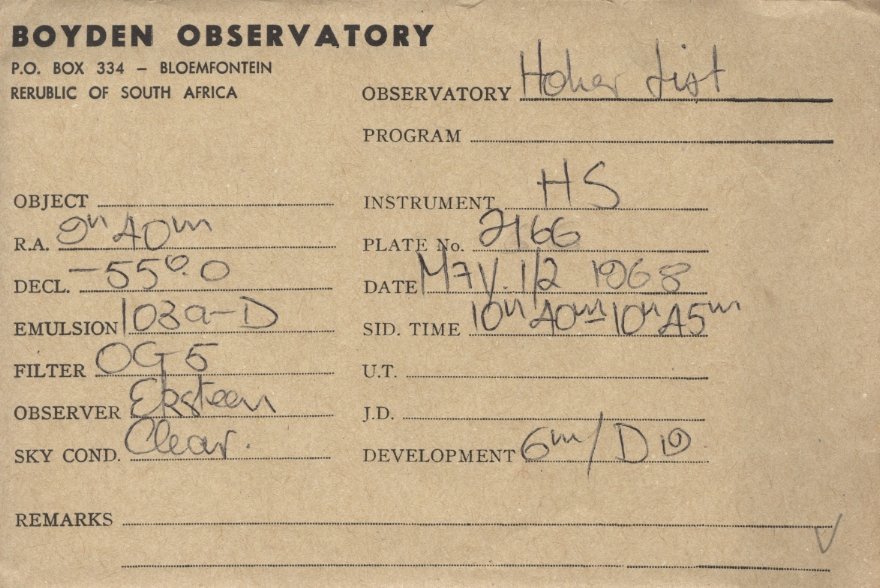 BOYDEN OBSERVATORY
P.O. BOX 334 – BLOEMFONTEIN
RERUBLIC OF SOUTH AFRICA
OBSERVATORY Hoher List
PROGRAM
OBJECT
R.A. 9h 40m
DECL. -55°.0
EMULSION 103a-D
FILTER OG 5
OBSERVER Eksteen
SKY COND. Clear.
INSTRUMENT HS
PLATE No. 2166
DATE May. 1/2 1968
SID. TIME 10h 40m-10h 45m
U.T.
J.D.
DEVELOPMENT 6m/D19
REMARKS